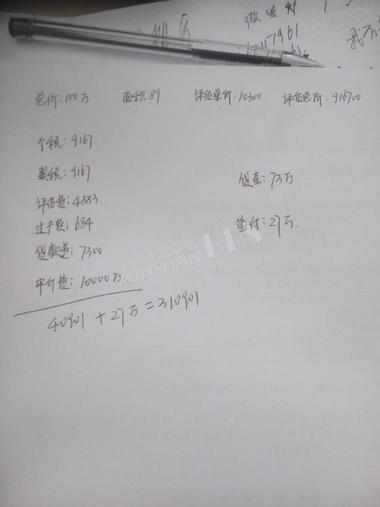 微
7961
总价:100万 面积:89 评估单价:10300 评估总价:916700
个税:9167
契税:9167
评估费:4583
贷款:73万
过户费:684
首付:27万
贷款费:7300
中介费:10000万
40901+27万=310901
KUNSHAN BBS